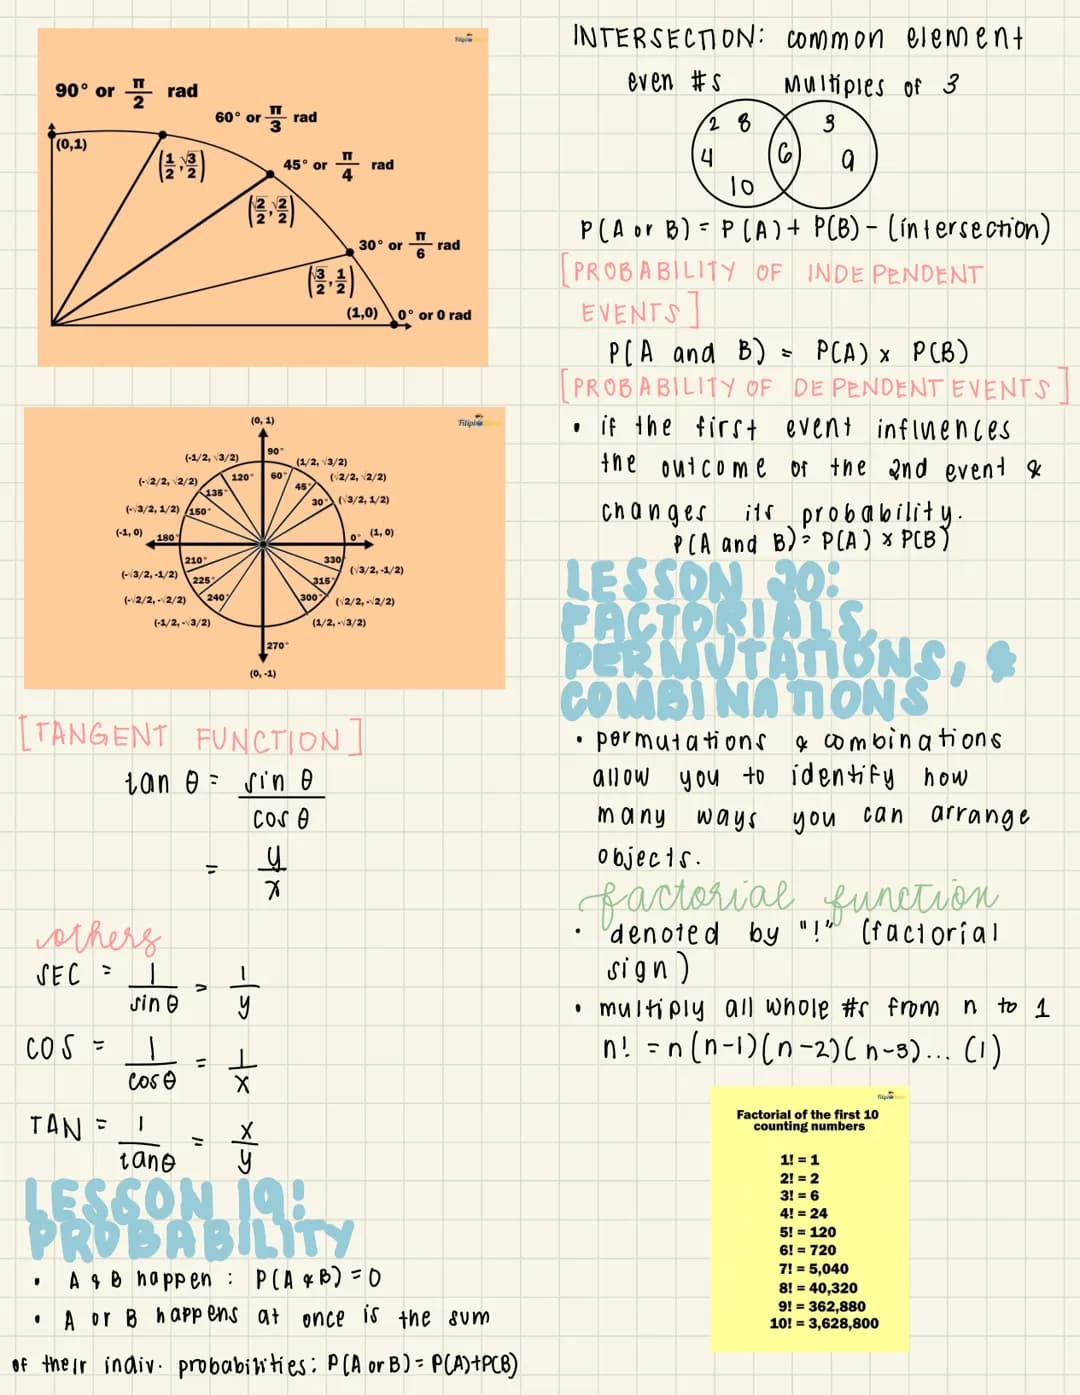 90° or π/2 rad
60° or π/3 rad
(0,1)
(1/2, √3/2)
45° or π/4 rad
(√2/2, √2/2)
30° or π/6 rad
(√3/2, 1/2)
(1,0) 0° or 0 rad
(0, 1)
90°
(-1/2, √3/2)
(1/2, √3/2)
120°
60°
(-√2/2, √2/2)
(√2/2, √2/2)
135°
45°
(-√3/2, 1/2)
150°
30°
(√3/2, 1/2)
(-1, 0)
180°
0°
(1, 0)
210°
330
(-√3/2, -1/2)
(√3/2, -1/2)
225°
315°
(-√2/2, -√2/2)
240°
300°
(√2/2, -√2/2)
(-1/2, -√3/2)
(1/2, -√3/2)
270°
(0, -1)
[TANGENT FUNCTION]
tan θ = sin θ / cos θ
= y/x
others
SEC = 1/sin θ = 1/y
COS = 1/cos θ = 1/x
TAN = 1/tan θ = x/y
LESSON 19:
PROBABILITY
• A & B happen : P(A & B) = 0
• A or B happens at once is the sum
of their indiv. probabilities: P(A or B) = P(A)+P(B)
INTERSECTION: common element
even #s Multiples of 3
2 8 3
4 6 9
10
P(A or B) = P(A) + P(B) - (intersection)
[PROBABILITY OF INDEPENDENT
EVENTS]
P(A and B) = P(A) x P(B)
[PROBABILITY OF DEPENDENT EVENTS]
• if the first event influences
the outcome of the 2nd event &
changes its probability.
P(A and B) = P(A) x P(B)
LESSON 20:
FACTORIALS,
PERMUTATIONS, &
COMBINATIONS
• permutations & combinations
allow you to identify how
many ways you can arrange
objects.
factorial function
• denoted by "!" (factorial
sign)
• multiply all whole #s from n to 1
n! = n(n-1)(n-2)(n-3)... (1)
Factorial of the first 10
counting numbers
1! = 1
2! = 2
3! = 6
4! = 24
5! = 120
6! = 720
7! = 5,040
8! = 40,320
9! = 362,880
10! = 3,628,800